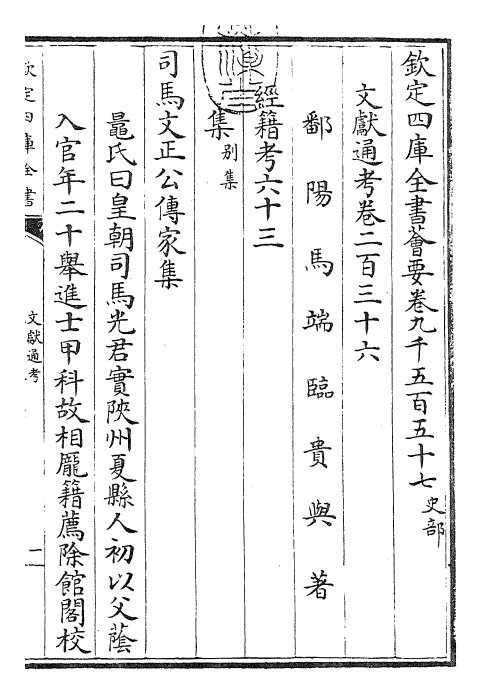 欽定四庫全書薈要卷九千五百五十七 史部
文獻通考卷二百三十六
鄱陽馬端臨貴與著
經籍考六十三
集 别集
司馬文正公傳家集
鼂氏曰皇朝司馬光君實陜州夏縣人初以父蔭
入官年二十舉進士甲科故相龎籍薦除館閣校
欽定四庫全書
文獻通考
一